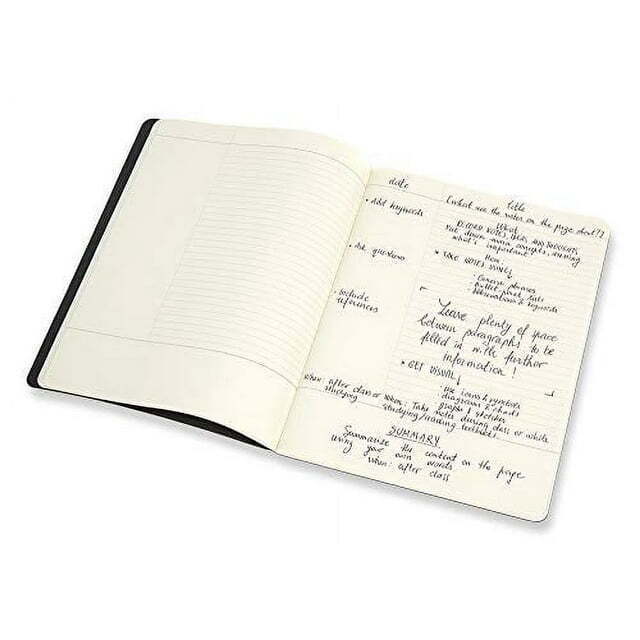 date
title
(what are the notes on the page about?)
• Add keywords
What
RECORD NOTES, IDEAS AND THOUGHTS
Put down main concepts, asking
what's important!
• Ask questions
How:
• TAKE NOTES USING
- Concise phrases
- Bullet point lists
- Abbreviations & keywords
• Include
references
Leave plenty of space
between paragraphs to be
filled in with further
information!
• GET VISUAL
Use icons & symbols
diagrams & charts
graphs & sketches
When: after class or
studying
When: Take notes during class or while
studying/reading textbooks
SUMMARY
Summarize the content on the page
using your own words
when: after class